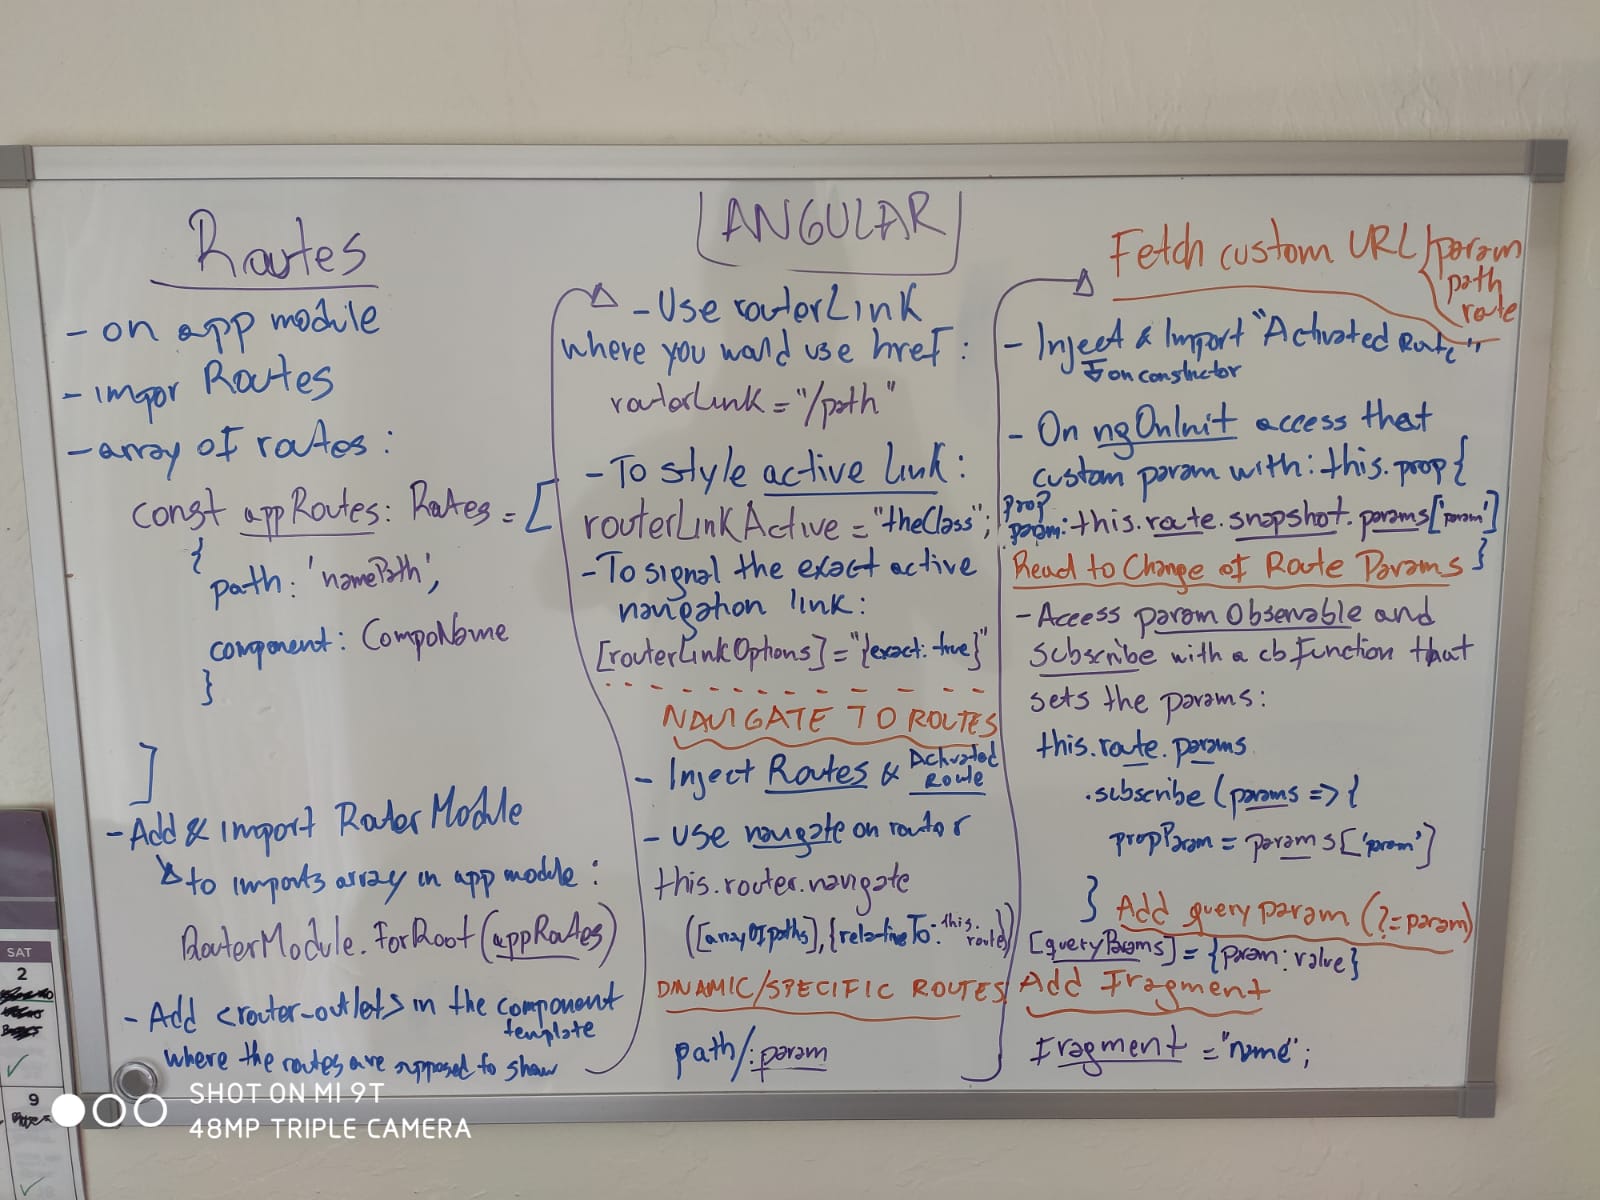 ANGULAR
Routes
- on app module
- impor Routes
- array of routes:
const appRoutes: Routes = [
{
path: 'namePath',
component: CompoName
}
]
- Add & Import RouterModule
to imports array in app module:
RouterModule.forRoot(appRoutes)
- Add <router-outlet> in the component
template
where the routes are supposed to show
- Use routerLink
where you would use href:
routerLink = "/path"
- To style active link:
routerLinkActive = "theClass";
- To signal the exact active
navigation link:
[routerLinkOptions] = "{exact: true}"
NAVIGATE TO ROUTES
- Inject Routes & Activated
Route
- Use navigate on router
this.router.navigate
([arrayOfpaths], {relativeTo: this.
route})
DINAMIC/SPECIFIC ROUTES
path/:param
Fetch custom URL param
path
route
- Inject & Import "Activated Route"
on constuctor
- On ngOnInit access that
custom param with: this.prop {
prop
param: this.route.snapshot.params['param']
}
React to Change of Route Params
- Access param Observable and
subscribe with a cb function that
sets the params:
this.route.params
.subscribe (params => {
propParam = params['param']
}
Add query param (?=param)
[queryParams] = {param: value}
Add Fragment
fragment = "name";
SAT
2
9
SHOT ON MI 9T
48MP TRIPLE CAMERA